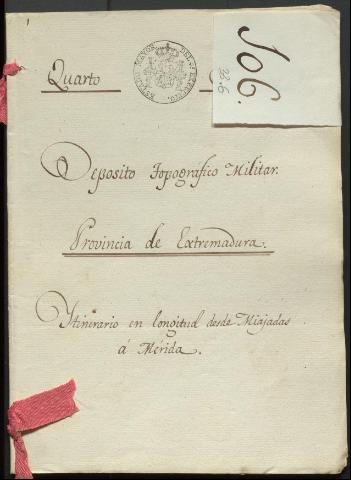 1
Quarto
106.
32.6
Deposito Topográfico Militar.
Provincia de Extremadura.
Ytinerario en longitud desde Miajadas
á Mérida.